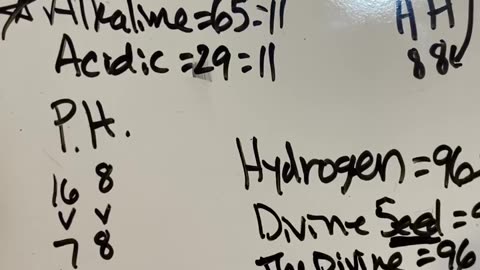 ☆ Alkaline=65=11
Acidic=29=11
H H
8 8
P.H.
16 8
7 8
Hydrogen=96
Divine Seed=9
The Divine=96